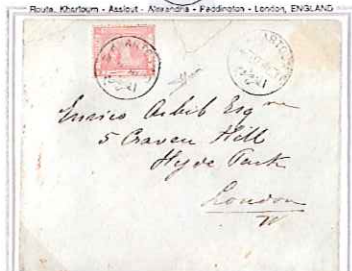 Route. Khartoum - Assiout - Alexandria - Paddington - London, ENGLAND
Enrico Arbib Esqre
5 Craven Hill
Hyde Park
London
W